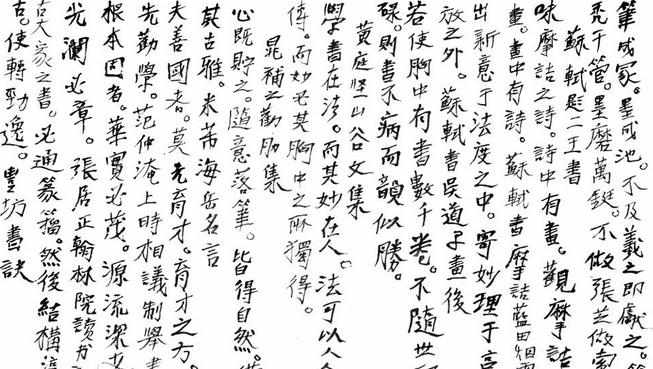 筆成冢。墨成池。不及羲之即獻之。筆
禿千管。墨磨萬鋌。不做張芝做索
蘇軾題二王書
味摩詰之詩。詩中有畫。觀摩詰
畫。畫中有詩。蘇軾書摩詰藍田烟雨
出新意于法度之中。寄妙理于豪
放之外。蘇軾書吳道子畫後
若使胸中有書數千卷。不隨世
碌。則書不病而韻似勝。
黃庭堅山谷文集
學書在法。而其妙在人。法可以人人
傳。而妙必其胸中之所獨得。
晁補之雞肋集
心既貯之。隨意落筆。皆得自然。備
其古雅。米芾海岳名言
夫善國者。莫先育才。育才之方。
先勸學。范仲淹上時相議制舉書
根本固者。華實必茂。源流深
光瀾必章。張居正翰林院讀書
古大家之書。必通篆籀。然後結構淳
古。使轉勁逸。豐坊書訣